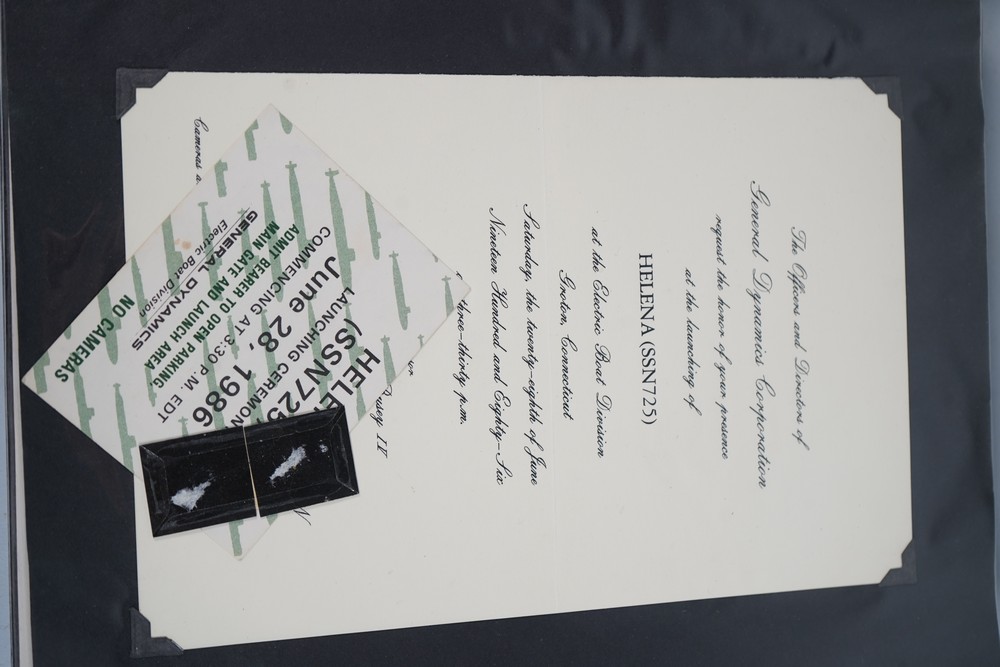 The Officers and Directors of
General Dynamics Corporation
request the honor of your presence
at the launching of
HELENA (SSN725)
at the Electric Boat Division
Groton, Connecticut
Saturday, the twenty-eighth of June
Nineteen Hundred and Eighty-Six
three-thirty p.m.
or
IV
N
Cameras a
HELE
(SSN725
LAUNCHING CEREMON
June 28, 1986
COMMENCING AT 3:30 P.M. EDT
ADMIT BEARER TO OPEN PARKING,
MAIN GATE AND LAUNCH AREA
GENERAL DYNAMICS
Electric Boat Division
NO CAMERAS